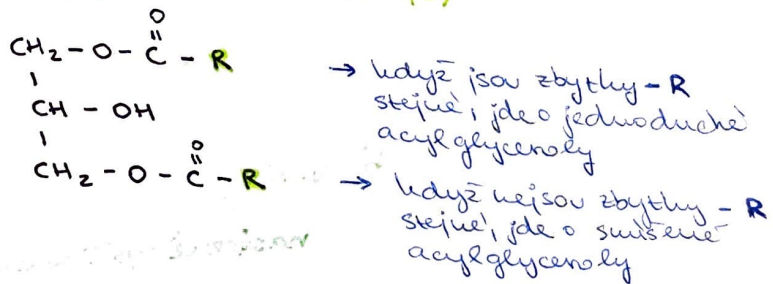 O
CH₂ - O - C - R
CH - OH
O
CH₂ - O - C - R
→ když jsou zbytky - R
stejné, jde o jednoduché
acylglyceroly
→ když nejsou zbytky - R
stejné, jde o smíšené
acylglyceroly